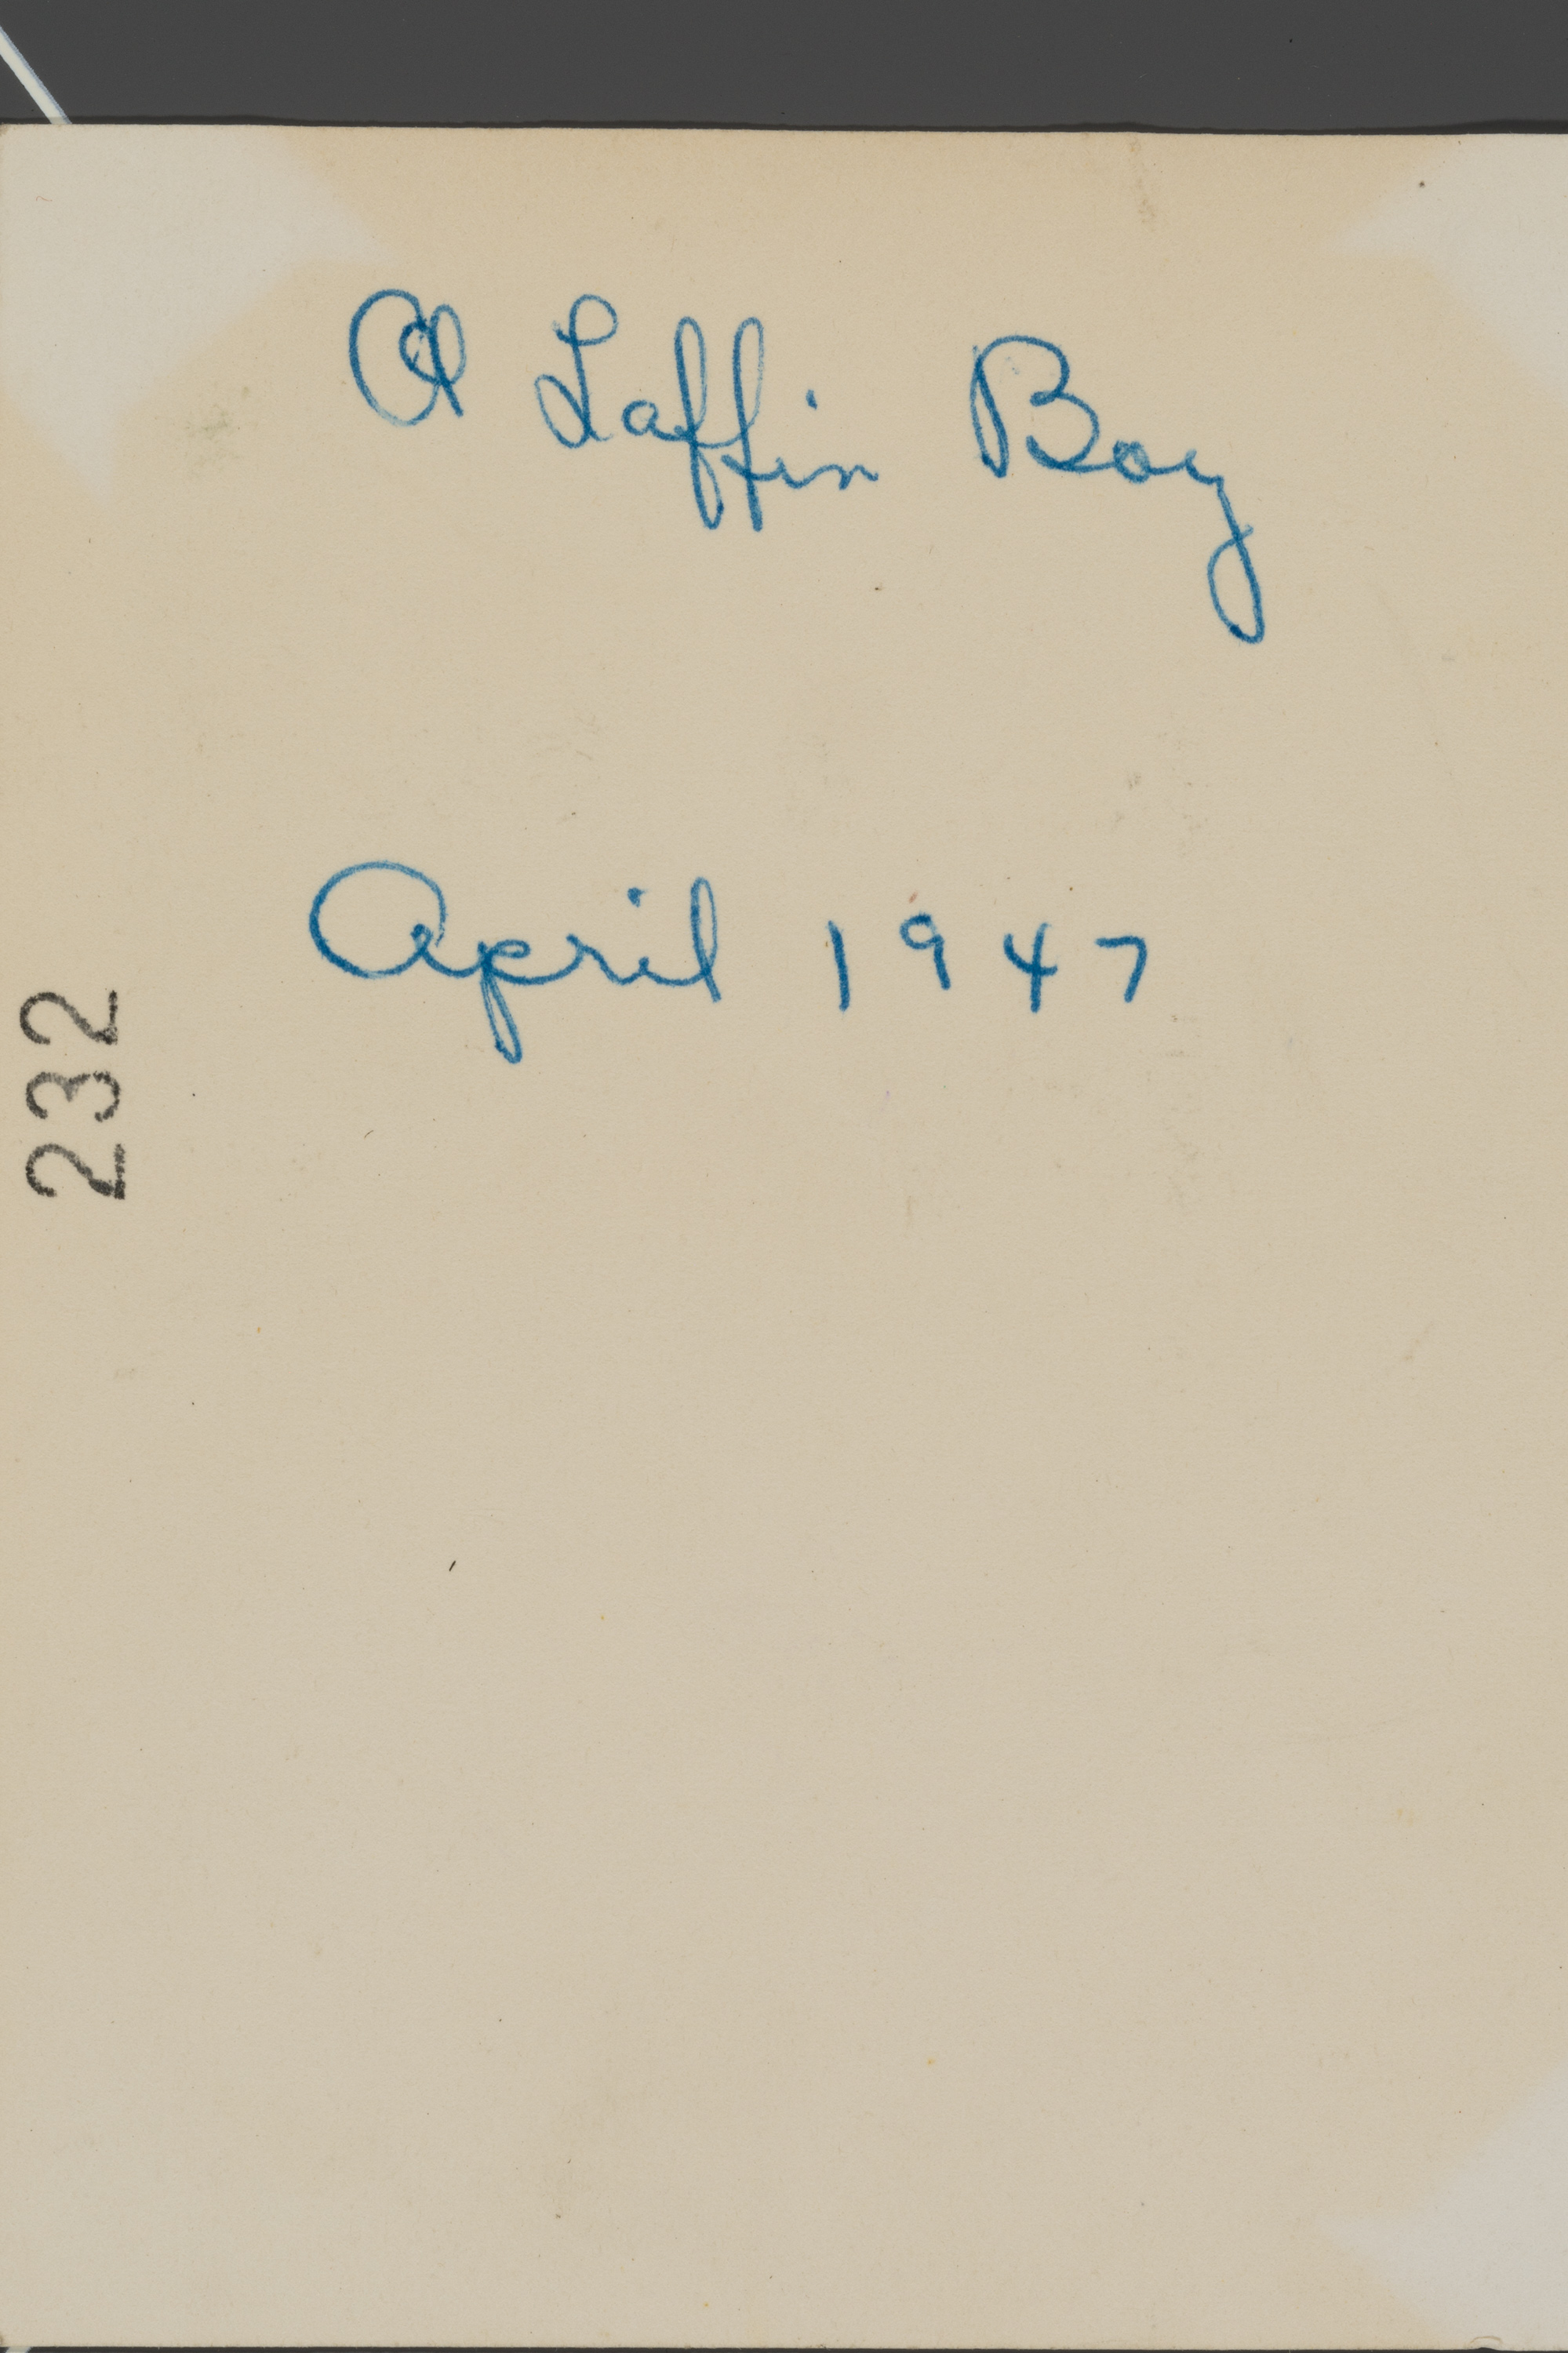 Ol Laffin Boy
April 1947
232